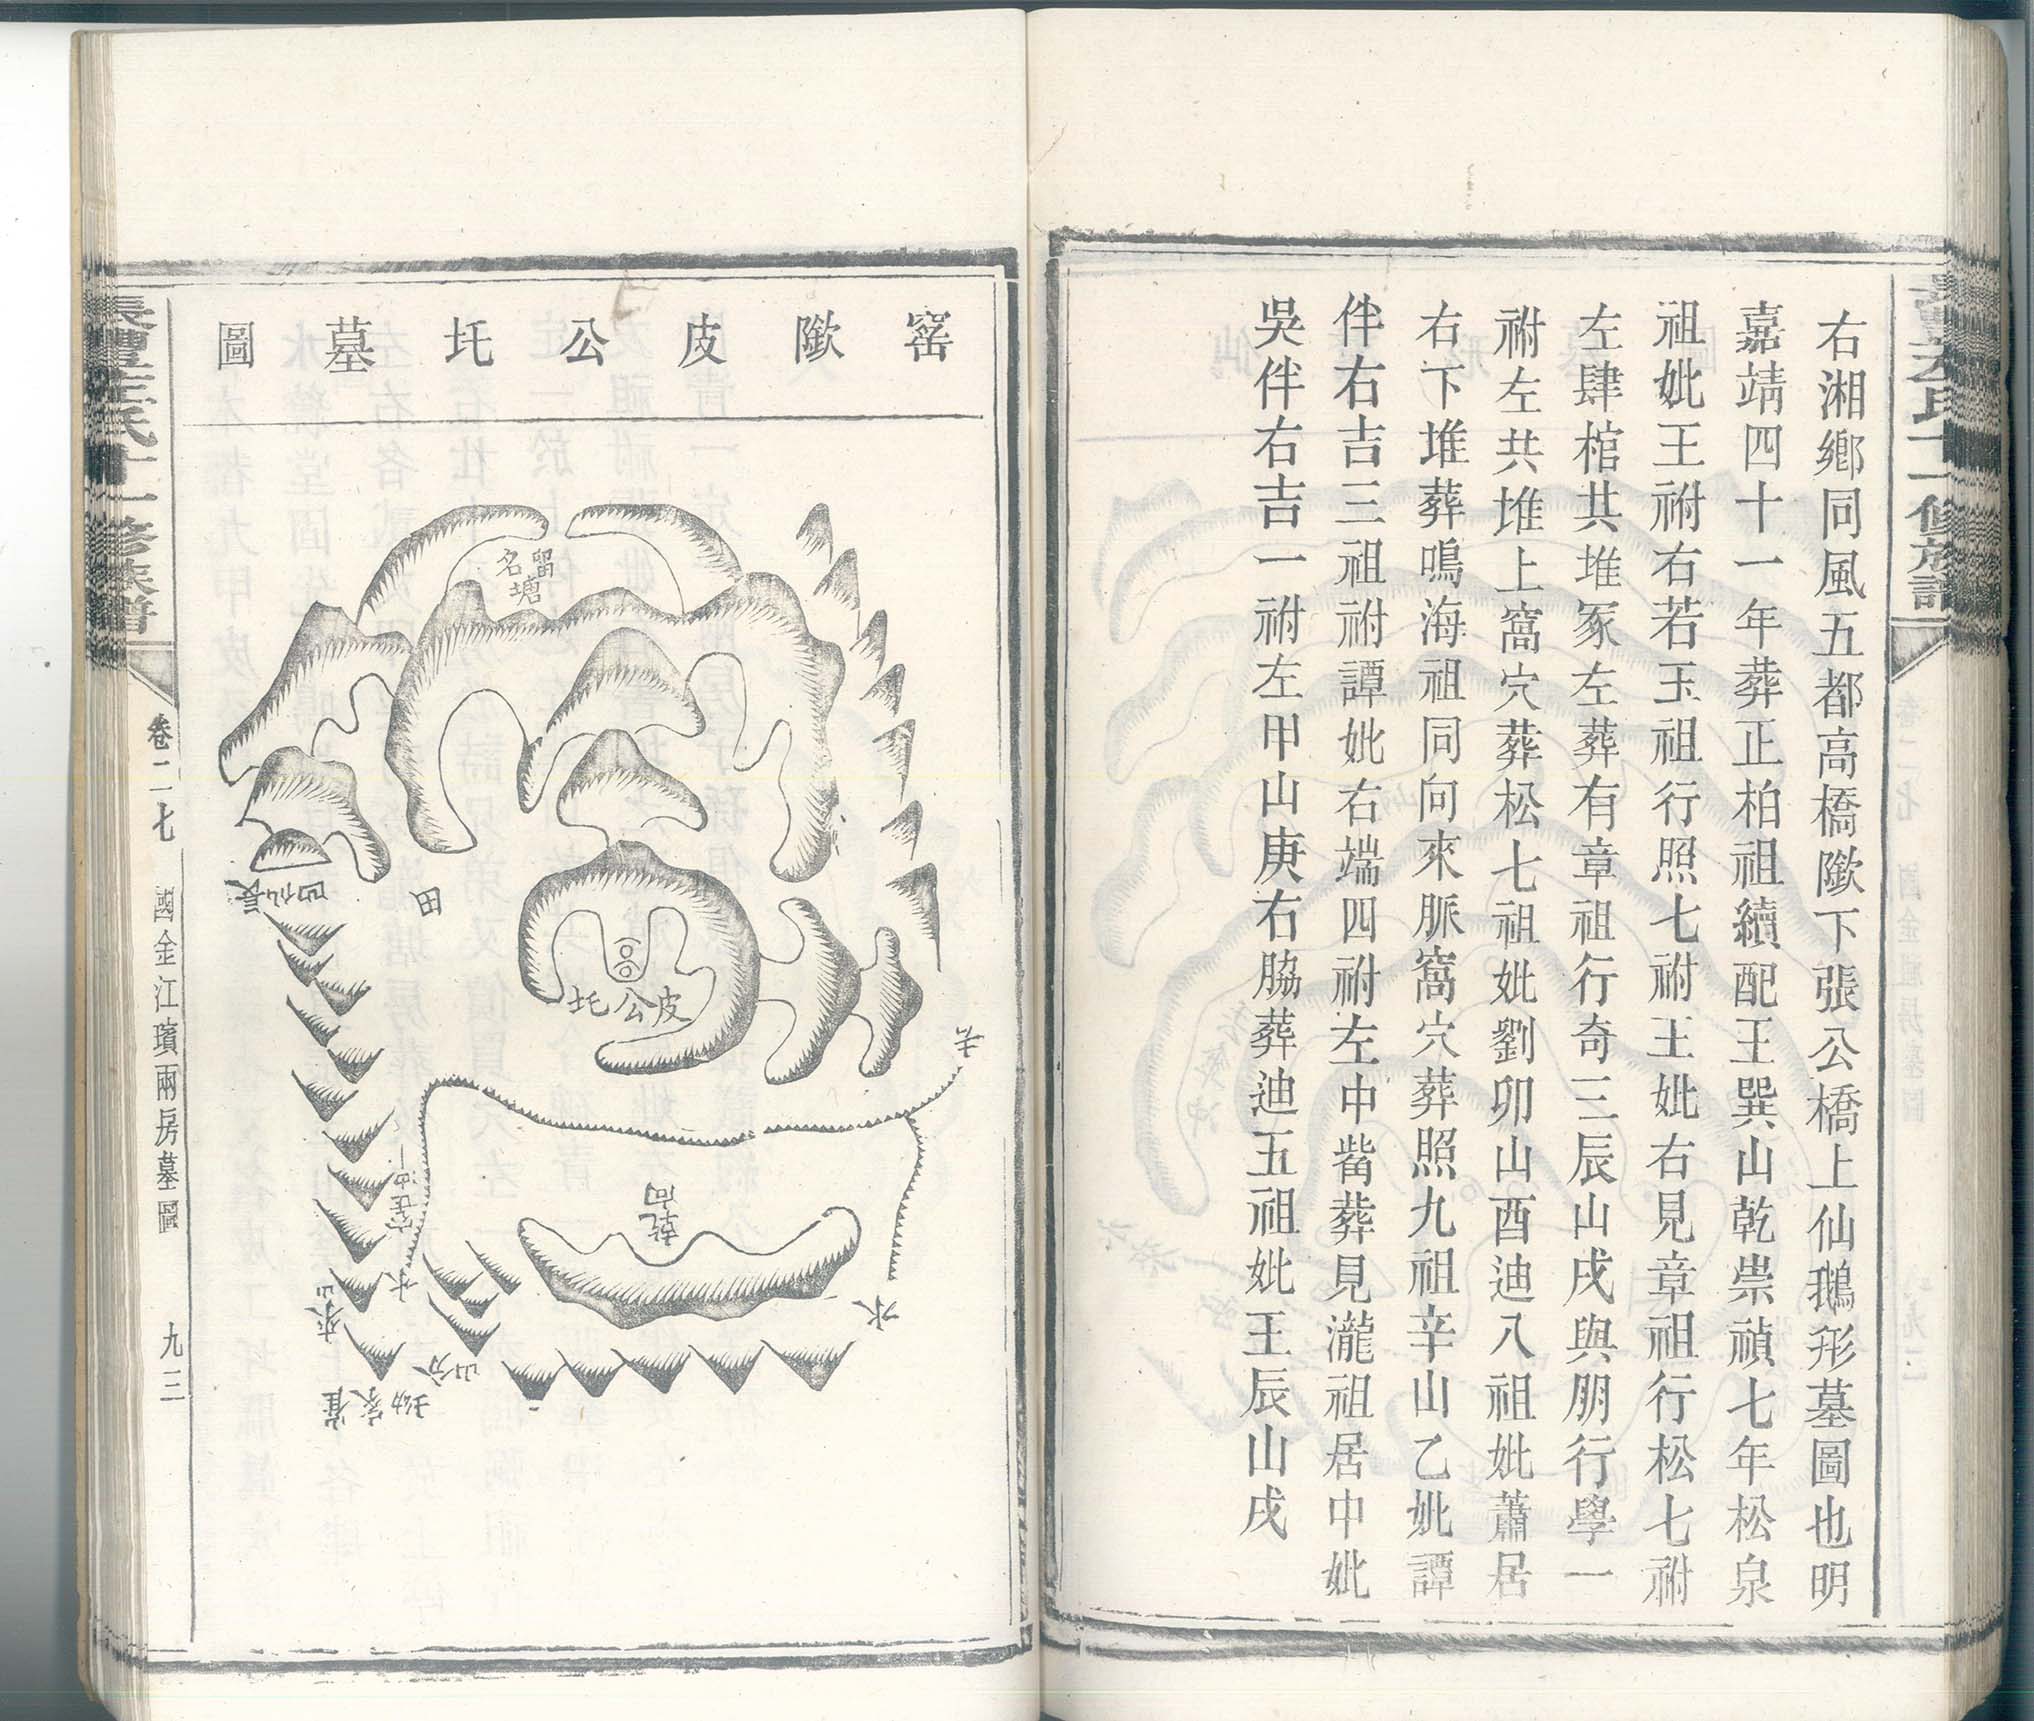 右湘鄉同風五都高橋歟下張公橋上仙鵝形墓圖也明
嘉靖四十一年葬正柏祖續配王巽山乾祟禎七年松泉
祖妣王祔右若玉祖行照七祔王妣右見章祖行松七祔
左肆棺共堆冢左葬有章祖行奇三辰山戌與朋行學一
祔左共堆上窩穴葬松七祖妣劉卯山酉迪八祖妣蕭居
右下堆葬鳴海祖同向來脈窩穴葬照九祖辛山乙妣譚
伴右吉三祖祔譚妣右端四祔左中崀葬見瀧祖居中妣
吳伴右吉一祔左甲山庚右脇葬迪五祖妣王辰山戌
窰歟皮公圫墓圖
留名塘
長仙凹
田
皮公圫
乾向
水
水
來山
分山
崔家坳
左氏十一修族譜
卷二七
國金江璸兩房墓圖
九三